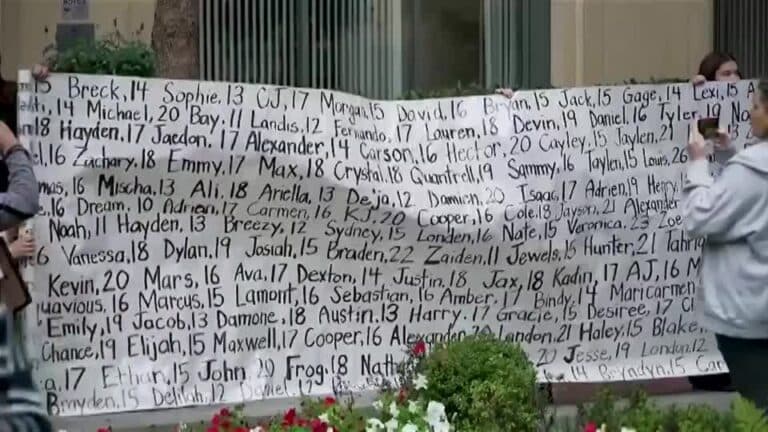 15 Breck, 14 Sophie, 13 CJ, 17 Morgan, 15 David, 16 Bryan, 15 Jack, 15 Gage, 14 Lexi, 15
14 Michael, 20 Bay, 11 Landis, 12 Fernando, 17 Lauren, 18 Devin, 19 Daniel, 16 Tyler, 19
18 Hayden, 17 Jaedon, 17 Alexander, 14 Carson, 16 Hector, 20 Cayley, 15 Jaylen, 21 13
16 Zachary, 18 Emmy, 17 Max, 18 Crystal, 18 Quantrell, 19 Sammy, 16 Taylen, 15 Louis,
16 Mischa, 13 Ali, 18 Ariella, 13 Deja, 12 Damien, 20 Isaac, 17 Adrien, 19 Henry,
16 Dream, 10 Adrian, 17 Carmen, 16 KJ, 20 Cooper, 16 Cole, 18 Jayson, 21 Alexander
Noah, 11 Hayden, 13 Breezy, 12 Sydney, 15 Londen, 16 Nate, 15 Veronica, 23 Zoe
6 Vanessa, 18 Dylan, 19 Josiah, 15 Braden, 22 Zaiden, 11 Jewels, 15 Hunter, 21
Kevin, 20 Mars, 16 Ava, 17 Dexton, 14 Justin, 18 Jax, 18 Kadin, 17 AJ, 16 M
16 Marcus, 15 Lamont, 16 Sebastian, 16 Amber, 17 Bindy, 14 Maricarmen
Emily, 19 Jacob, 13 Damone, 18 Austin, 13 Harry, 17 Gracie, 15 Desiree, 17
Chance, 19 Elijah, 15 Maxwell, 17 Cooper, 16 Alexander, 20 Landon, 21 Haley, 15 Blake,
17 Ethan, 15 John, 20 Frog, 18 20 Jesse, 19 London, 12
Brayden, 15 Delilah, 12 Daniel, 14 Brydyn, 15